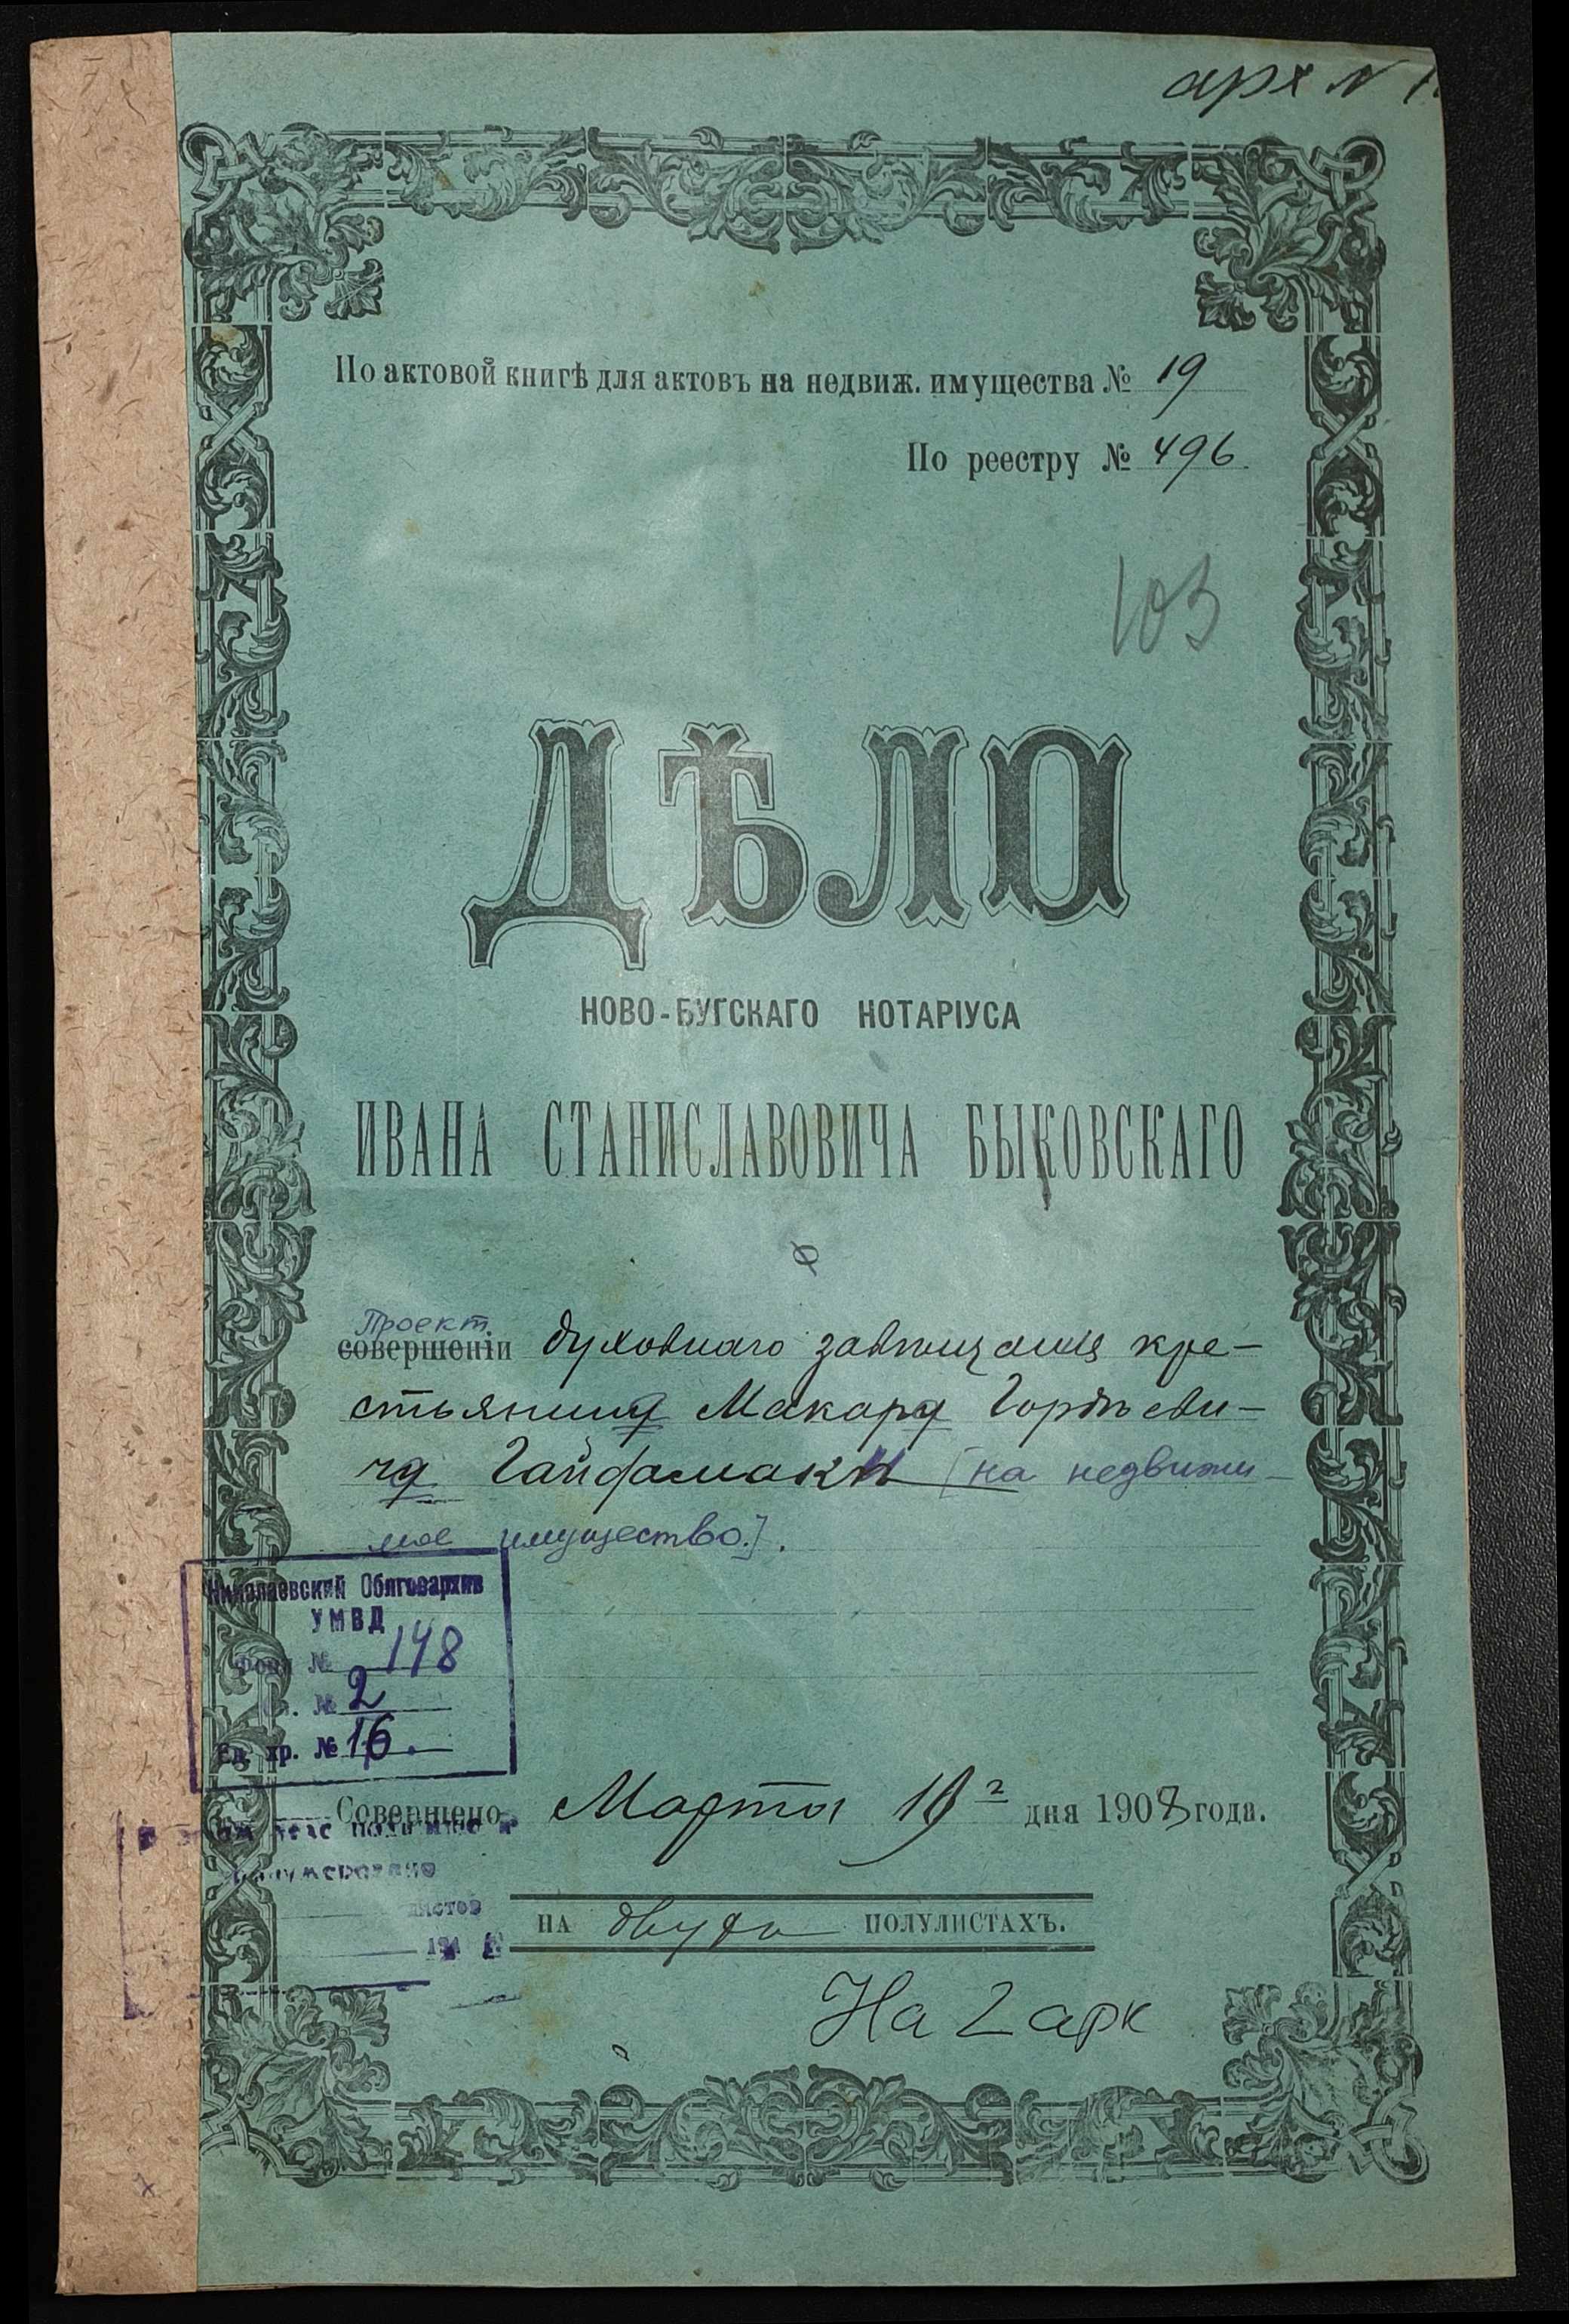 арх №
По актовой книгѣ для актовъ на недвиж. имущества № 19
По реестру № 496
103
ДѢЛО
НОВО-БУГСКАГО НОТАРІУСА
ИВАНА СТАНИСЛАВОВИЧА БЫКОВСКАГО
Проект
совершеніи духовнаго завѣщанія кре-
стьянина Макара Гордѣеви-
ча Гайдамаки [на недвижи-
мое имущество.].
Николаевский Облгосархив
УМВД
Фонд № 148
№ 2
Ед. хр. № 16.
Совершено Марта дня 1908 года.
листов
НА двухъ ПОЛУЛИСТАХЪ.
На 2 арк